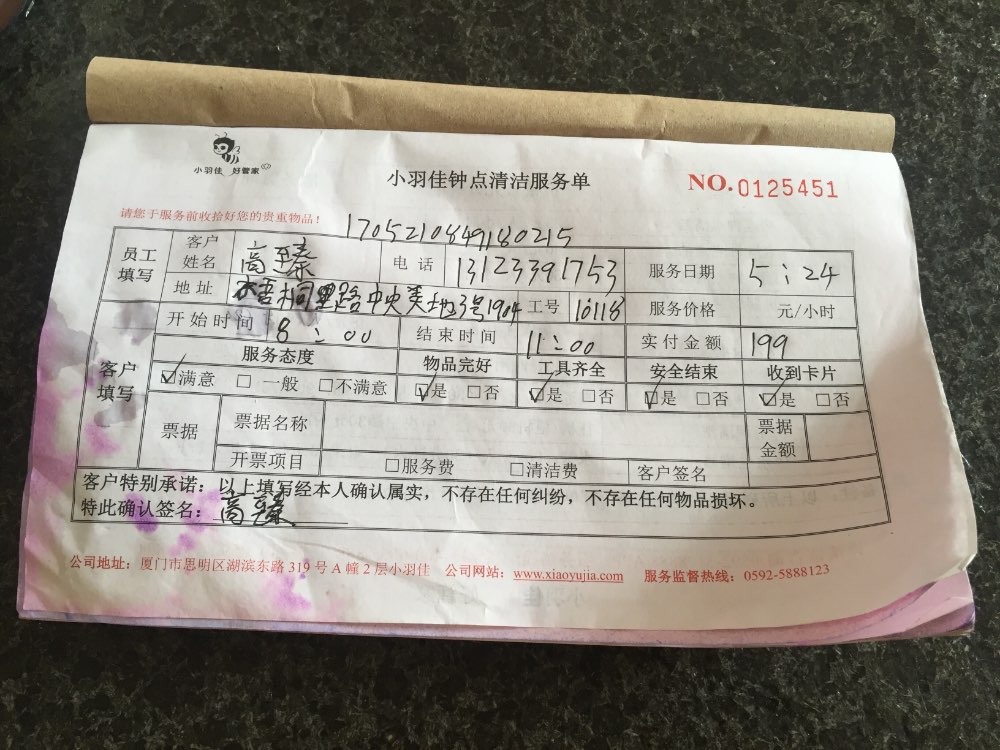 小羽佳 好管家
小羽佳钟点清洁服务单
NO.0125451
请您于服务前收拾好您的贵重物品!
1705210849180215
员工填写 客户姓名 高臻 电话 13123391753 服务日期 5:24
地址 梧桐里路中央美地3号1904 工号 10118 服务价格 元/小时
开始时间 8:00 结束时间 11:00 实付金额 199
客户填写 服务态度 物品完好 工具齐全 安全结束 收到卡片
☑满意 □一般 □不满意 ☑是 □否 ☑是 □否 ☑是 □否 ☑是 □否
票据 票据名称 票据金额
开票项目 □服务费 □清洁费 客户签名
客户特别承诺:以上填写经本人确认属实,不存在任何纠纷,不存在任何物品损坏。
特此确认签名:高臻
公司地址:厦门市思明区湖滨东路319号A幢2层小羽佳 公司网站:www.xiaoyujia.com 服务监督热线:0592-5888123